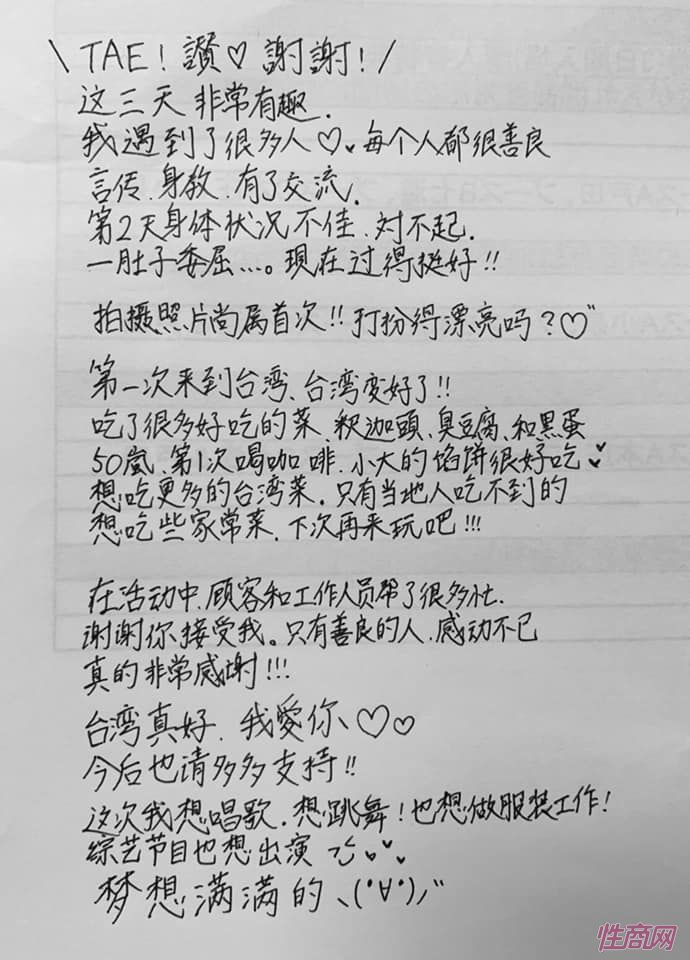 \ TAE！讚♡謝謝！/
这三天非常有趣.
我遇到了很多人♡、每个人都很善良
言传、身教、有了交流.
第2天身体状况不佳、対不起.
一肚子委屈…。現在过得挺好!!
拍摄照片尚属首次!! 打扮得漂亮吗？♡"
第一次来到台湾、台湾变好了!!
吃了很多好吃的菜、釈迦頭、臭豆腐、和黑蛋
50嵐、第1次喝咖啡、小大的馅饼很好吃♥
想吃更多的台湾菜、只有当地人吃不到的
想吃些家常菜、下次再来玩吧!!!
在活动中、顾客和工作人员帮了很多忙.
谢谢你接受我。只有善良的人、感动不已
真的非常感謝!!!
台湾真好、我愛你♡♡
今后也请多多支持!!
这次我想唱歌、想跳舞！也想做服装工作！
综艺节目也想出演
梦想满满的ヽ(•∀•)ノ"
性商网